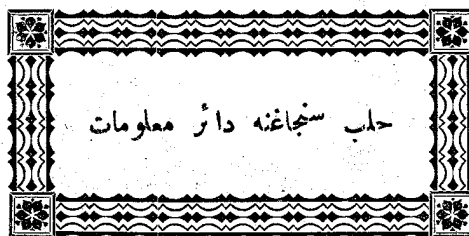 حلب سنجاغنه دائر معلومات